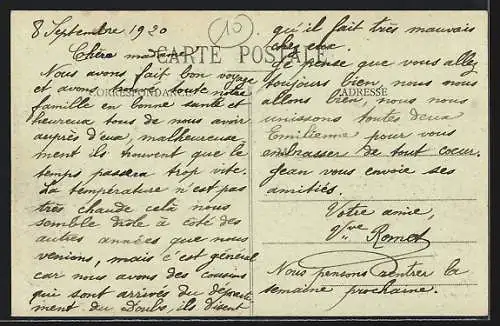 8 Septembre 1920
10
CARTE POSTALE
CORRESPONDANCE
ADRESSE
Chère madame,
Nous avons fait bon voyage
et avons trouvé toute notre
famille en bonne santé et
heureux tous de nous avoir
auprès d'eux, malheureuse
ment ils trouvent que le
temps passera trop vite.
La température n'est pas
très chaude celà nous
semble drôle à côté des
autres années que nous
venions, mais c'est général
car nous avons des cousins
qui sont arrivés du départe
ment du Doubs, ils disent
qu'il fait très mauvais
chez eux.
Je pense que vous allez
toujours bien, nous nous
allons bien, nous nous
unissons toutes deux
Emilienne pour vous
embrasser de tout coeur.
Jean vous envoie ses
amitiés.
Votre amie,
Vve Romet
Nous pensons rentrer la
semaine prochaine.